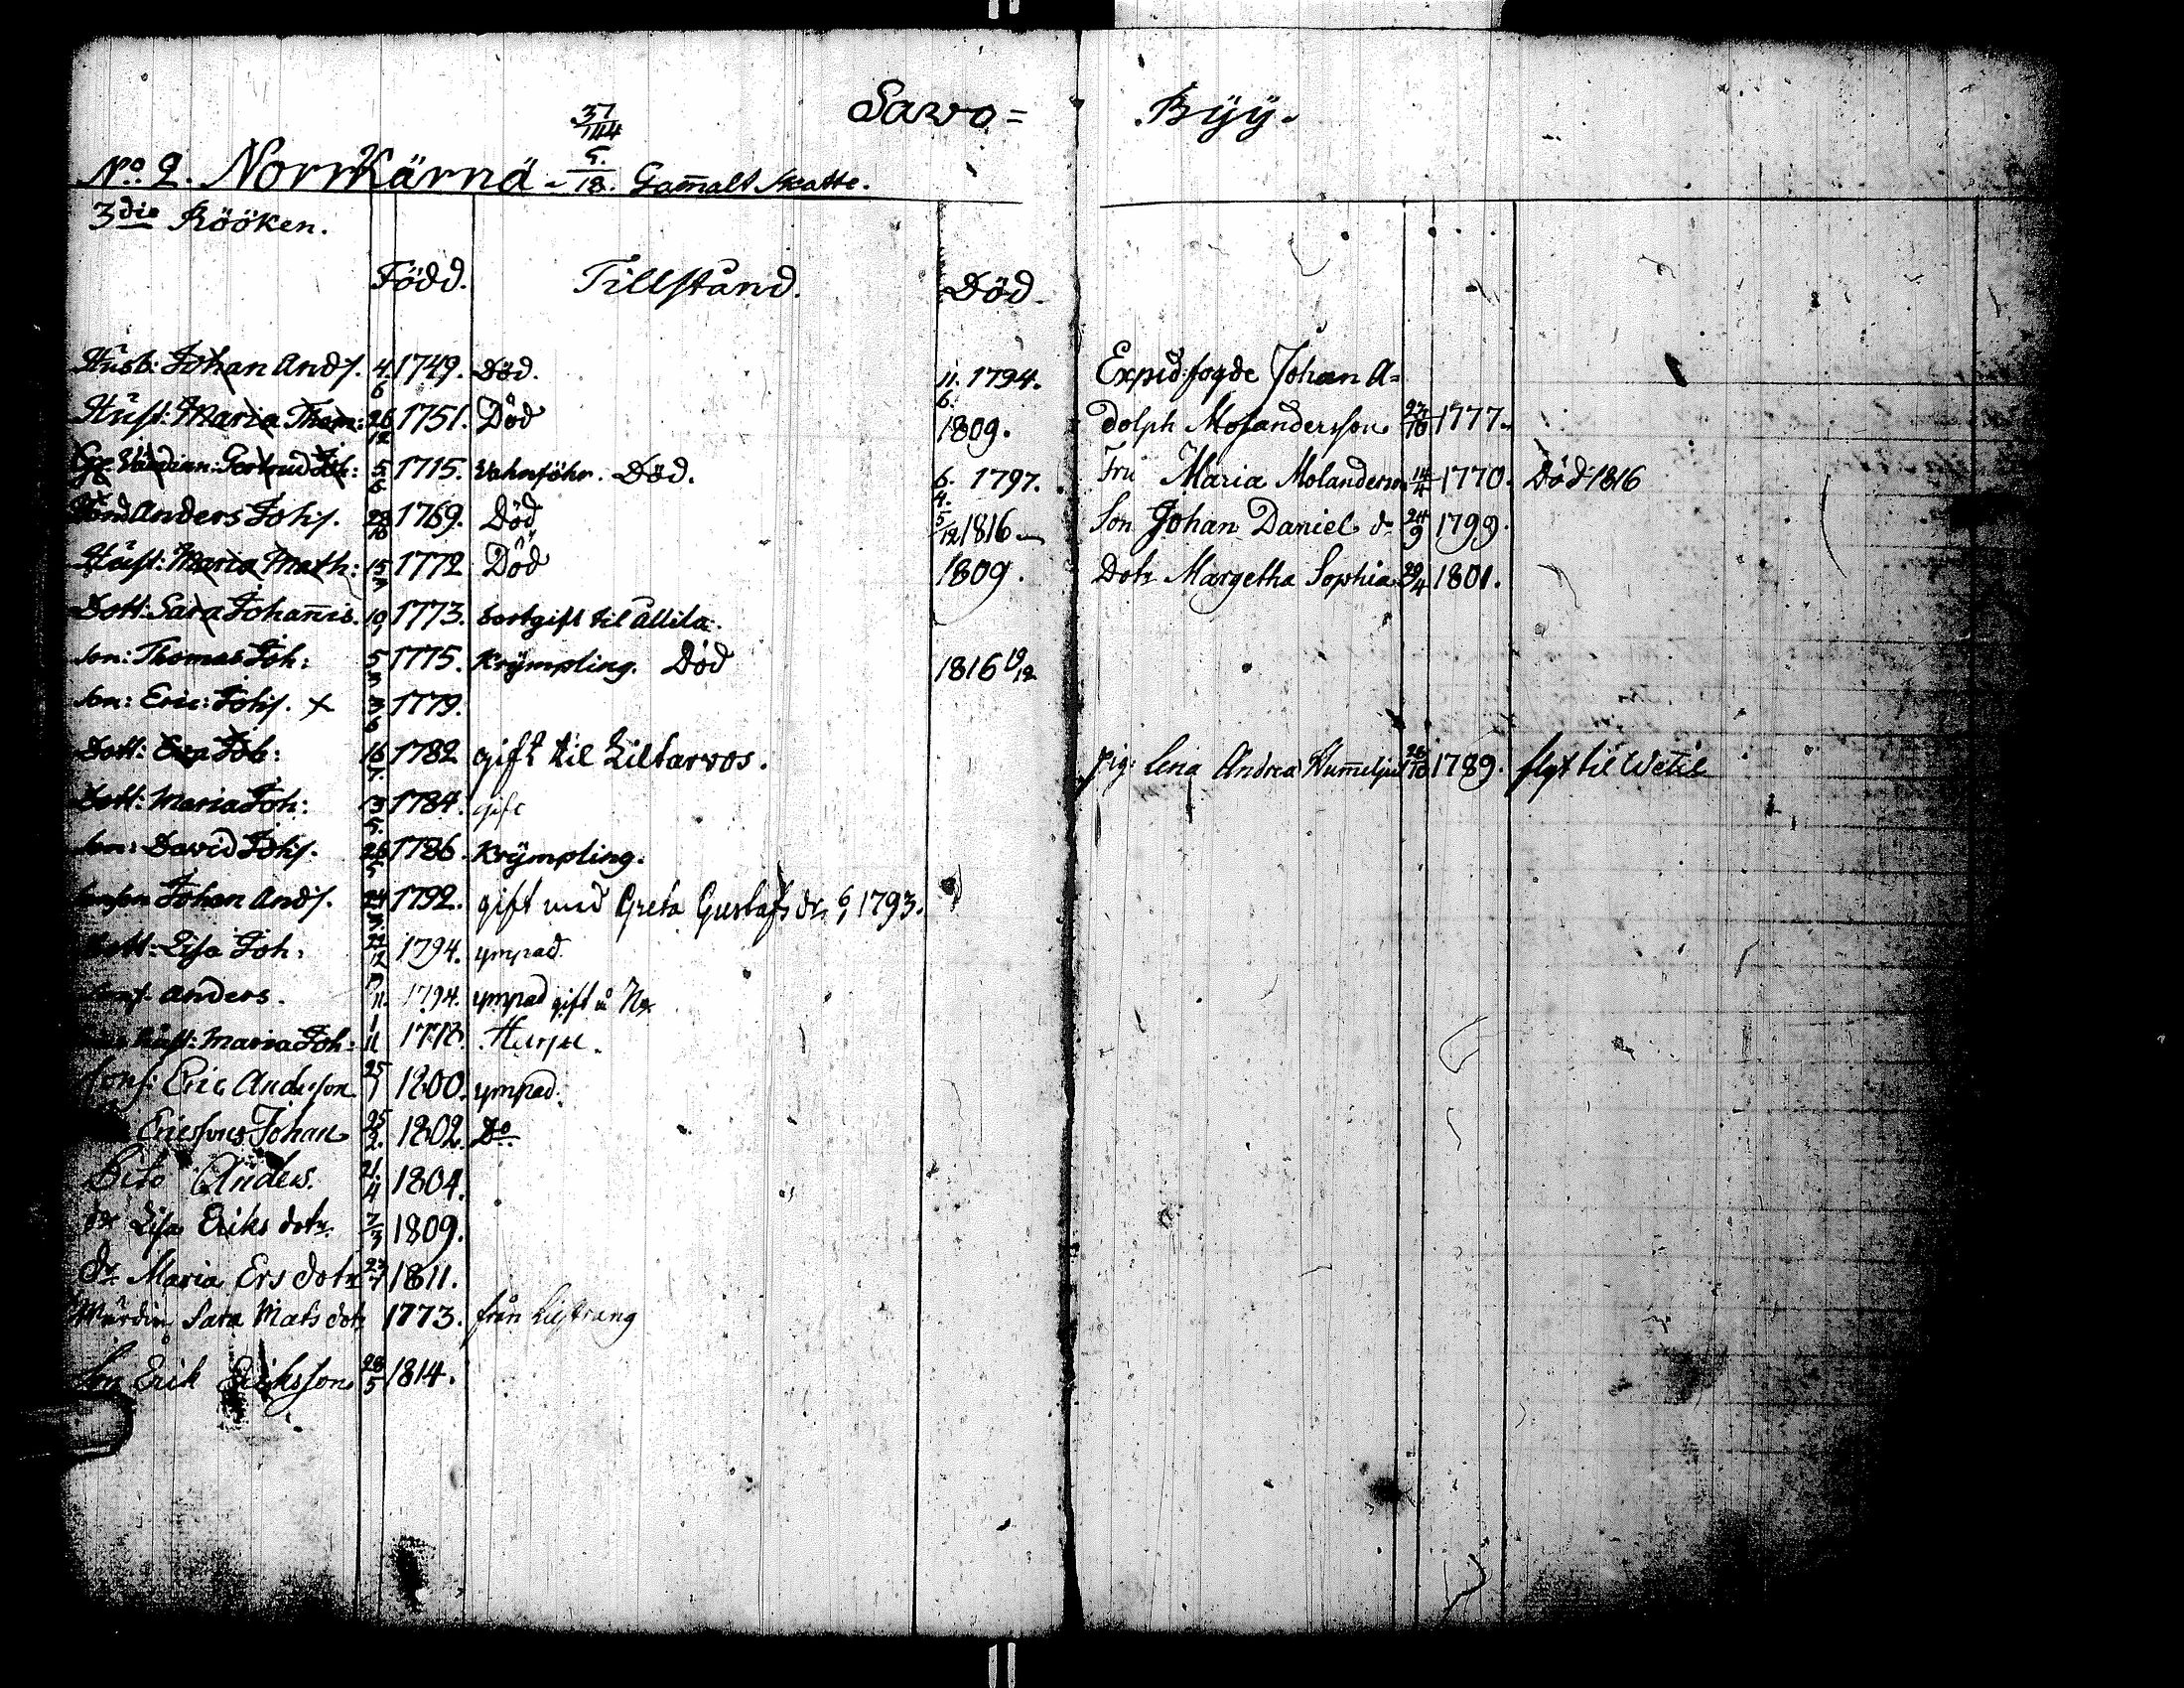 Sawo= Byÿ.
37/144
No. 2. Norrkärnä - 5./18. Gam̄alt Skatte.
3die Rööken.
Född. Tillstånd. Död.
Husb: Johan Ands. 4/6 1749. Död. 11/6. 1794.
Hust: Maria Thom: 26/12 1751. Död 1809.
Gertrud Joh: 5/6 1715. Död. 6/4. 1797.
Anders Johs. 28/10 1769. Död 5/12 1816
Hust: Maria Math: 15/7 1772 Död 1809.
Dott: Sara Johan̄is. 10/1 1773. bortgift til Allila.
Son: Thomas Joh: 5/3 1775. Krÿmpling. Död 1816 19/12
Son: Eric: Johs. + 3/6 1779.
Dott: Eva Joh: 16/7. 1782 gift til Liltarvos.
Dott: Maria Joh: 13/5. 1784. gift
Son: David Johs. 26/5 1786. Krÿmpling.
Johan Ands. 24/3. 1792. gift med Greta Gustafs dr. 6/1 1793.
Dott: Lisa Joh: 21/12 1794. ympad.
Anders. /11. 1794. ympad gift å
Hust: Maria Joh: 1/11 1778.
Sons: Eric Andersson 25/1 1800. ympad.
Ericssons Johan 25/2. 1802. Do.
Dito Anders. 21/4 1804.
dr Lisa Eriks dotr. 7/3 1809.
dr. Maria Ers dotr 23/7 1811.
Sara Mats dotr 1773. från
Son Erik Eriksson 28/5 1814.
Expid: fogde Johan A=
dolph Molandersson 27/10 1777.
Fru Maria Molanders 14/4 1770. Död 1816
Son Johan Daniel do 24/9 1799.
Dotr Margetha Sophia 29/4 1801.
pig. Lena Andrea 26/10 1789. flyt til Wetil